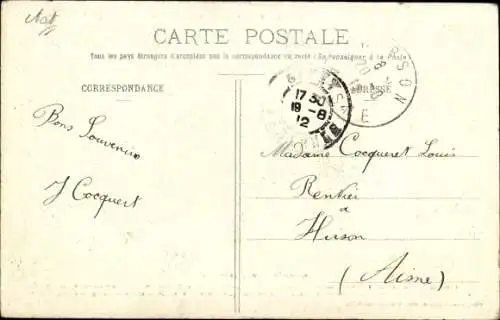 CARTE POSTALE
Tous les pays étrangers n'acceptent pas la correspondance au recto (Se renseigner à la Poste)
CORRESPONDANCE
ADRESSE
17 30
19 - 8
12
Bons Souvenirs
J Cocquert
Madame Cocqueret Louis
Rentier
à
Hirson
(Aisne)